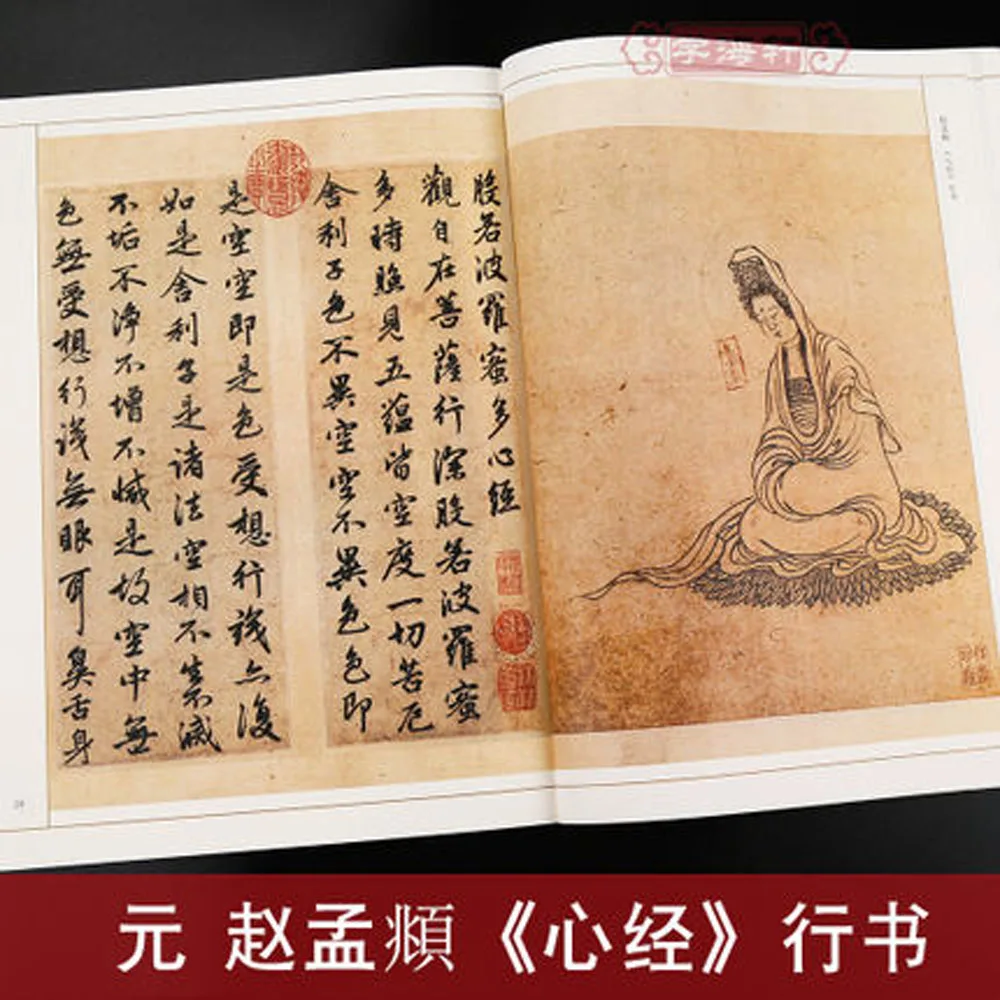 字海轩
般若波羅蜜多心經
觀自在菩薩行深般若波羅蜜
多時照見五蘊皆空度一切苦厄
舍利子色不異空空不異色色即
是空空即是色受想行識亦復
如是舍利子是諸法空相不生滅
不垢不淨不增不減是故空中無
色無受想行識無眼耳鼻舌身
元 赵孟頫《心经》行书